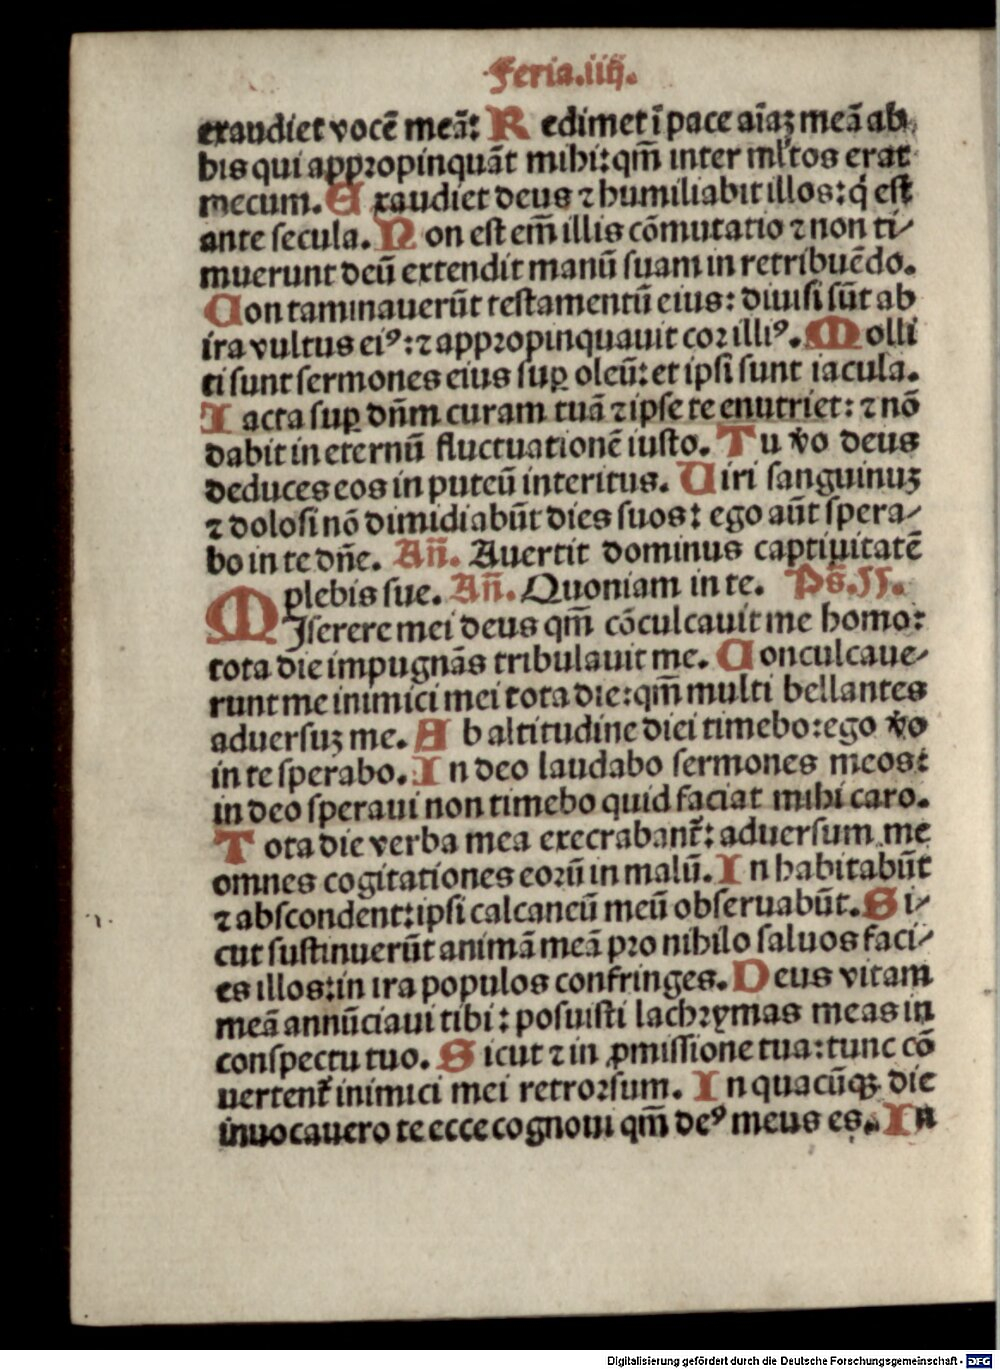 Feria.iiij.
exaudiet vocē meā: Redimet ī pace aīaꝫ meā ab
his qui appropinquāt mihi: qm̄ inter ml̓tos erat
mecum. Exaudiet deus ⁊ humiliabit illos: q̇ est
ante secula. Non est em̄ illis cōmutatio ⁊ non ti⸗
muerunt deū extendit manū suam in retribuēdo.
Contaminauerūt testamentū eius: diuisi sūt ab
ira vultus eiꝰ: ⁊ appropinquauit cor illiꝰ. Molli
ti sunt sermones eius suꝑ oleū: et ipsi sunt iacula.
Iacta suꝑ dn̄m curam tuā ⁊ ipse te enutriet: ⁊ nō
dabit in eternū fluctuationē iusto. Tu v̄o deus
deduces eos in puteū interitus. Uiri sanguinuꝫ
⁊ dolosi nō dimidiabūt dies suos: ego aūt spera⸗
bo in te dn̄e. Añ. Auertit dominus captiuitatē
plebis sue. Añ. Quoniam in te. Ps̄.55.
MIserere mei deus qm̄ cōculcauit me homo:
tota die impugnās tribulauit me. Conculcaue⸗
runt me inimici mei tota die: qm̄ multi bellantes
aduersuꝫ me. Ab altitudine diei timebo: ego v̄o
in te sperabo. In deo laudabo sermones meos:
in deo speraui non timebo quid faciat mihi caro.
Tota die verba mea execrabant᷑: aduersum me
omnes cogitationes eorū in malū. Inhabitabūt
⁊ abscondent: ipsi calcaneū meū obseruabūt. Si⸗
cut sustinuerūt animā meā pro nihilo saluos faci⸗
es illos: in ira populos confringes. Deus vitam
meā annūciaui tibi: posuisti lachrymas meas in
conspectu tuo. Sicut ⁊ in ꝓmissione tua: tunc cō
uertent᷑ inimici mei retrorsum. In quacūqꝫ die
inuocauero te ecce cognoui qm̄ deꝰ meus es. In
Digitalisierung gefördert durch die Deutsche Forschungsgemeinschaft - DFG